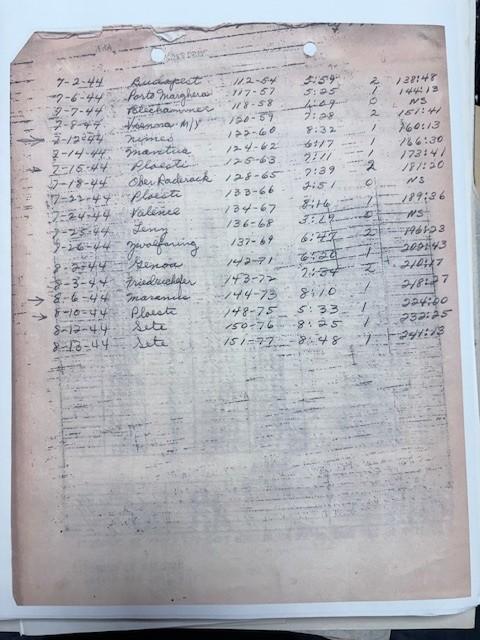 7-2-44 Budapest 112-54 5:59 2 138:48
7-6-44 Porto Marghera 117-57 5:25 1 144:13
7-7-44 Blechhammer 118-58 0 NS
120-59 7:28 2 151:41
7-12-44 Nimes 122-60 8:32 1 160:13
7-14-44 Mantua 124-62 6:17 1 166:30
7-15-44 Ploesti 125-63 7:11 1 173:41
7-18-44 Ober Raderach 128-65 7:39 2 181:20
7-22-44 Ploesti 133-66 2:51 0 NS
7-24-44 Valence 134-67 8:16 1 189:36
7-25-44 136-68 NS
7-26-44 137-69 6:47 2
8-2-44 Genoa 142-71 6:20 1
8-3-44 143-72 7:34 2
8-6-44 144-73 8:10 1 218:27
8-10-44 Ploesti 148-75 5:33 1 224:00
8-12-44 Sete 150-76 8:25 1 232:25
8-13-44 Sete 151-77 8:48 1 241:13